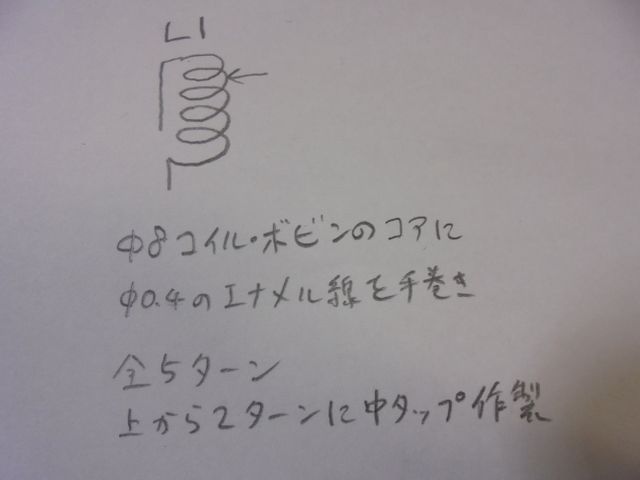 L1
φ8コイル・ボビンのコアに
φ0.4のエナメル線を手巻き
全5ターン
上から2ターンに中タップ作製